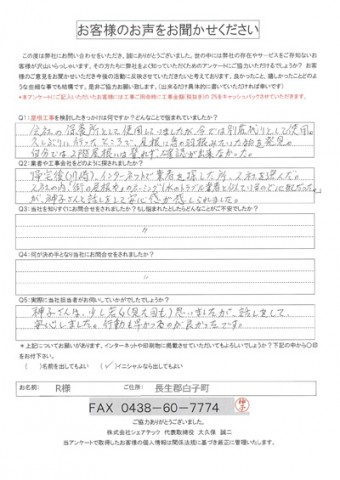 お客様のお声をお聞かせください
この度は弊社にお問い合わせをいただき、誠にありがとうございました。世の中には弊社の存在やサービスをご存知ないお
客様が沢山いらっしゃいます。その方たちに弊社をよく知っていただくためのアンケートにご協力いただけるでしょうか？お客
様のご意見をお聞かせいただき今後の活動に反映させていただきたいと考えております。良かったこと、嬉しかったことどのよ
うな些細な事でも結構です、是非ご協力お願い致します。（出来るだけ具体的に書いていただければ幸いです）
*本アンケートにご記入いただいたお客様には工事ご用命時に工事金額（税抜き）の2%をキャッシュバックさせていただきます。
Q1：屋根工事を検討したきっかけは何ですか？どんなことで悩まれていましたか？
会社の保養所として使用していましたが、今では別荘代りとして使用。
久しぶりに行ったところで、屋根に鳥の羽根みたいな物を発見。
自分では2階屋根には登れず、確認が出来なかった。
Q2：業者や工事会社をどのように探されましたか？
帰宅後(川崎)、インターネットで業者を探した所、
が、神子さんと話をして安心感が感じられました。
Q3：当社を知りすぐにお問合せをされましたか？もし悩まれたとしたらどんなことがご不安でしたか？
〃
Q4：何が決め手となり当社にお問合せをされましたか？
〃
Q5：実際に当社担当者がお伺いしていかがでしたでしょうか？
神子さんは、少し若く(見た目も)思いましたが、話しをして、
安心しました。行動も早かったのが良かったです。
*上記についてお願いがあります、インターネットや印刷物に掲載させていただいてもよろしいでしょうか？下記の中から○印
をお付け下さい。
（　）名前を出してもよい　（✓）イニシャルなら出してもよい
お名前：　R様　ご住所：　長生郡白子町
FAX 0438-60-7774
ご協力ありがとうございました。
株式会社シェアテック 代表取締役 大久保 誠二
当アンケートで取得したお客様の個人情報は関係法規に基づき厳正に管理いたします。